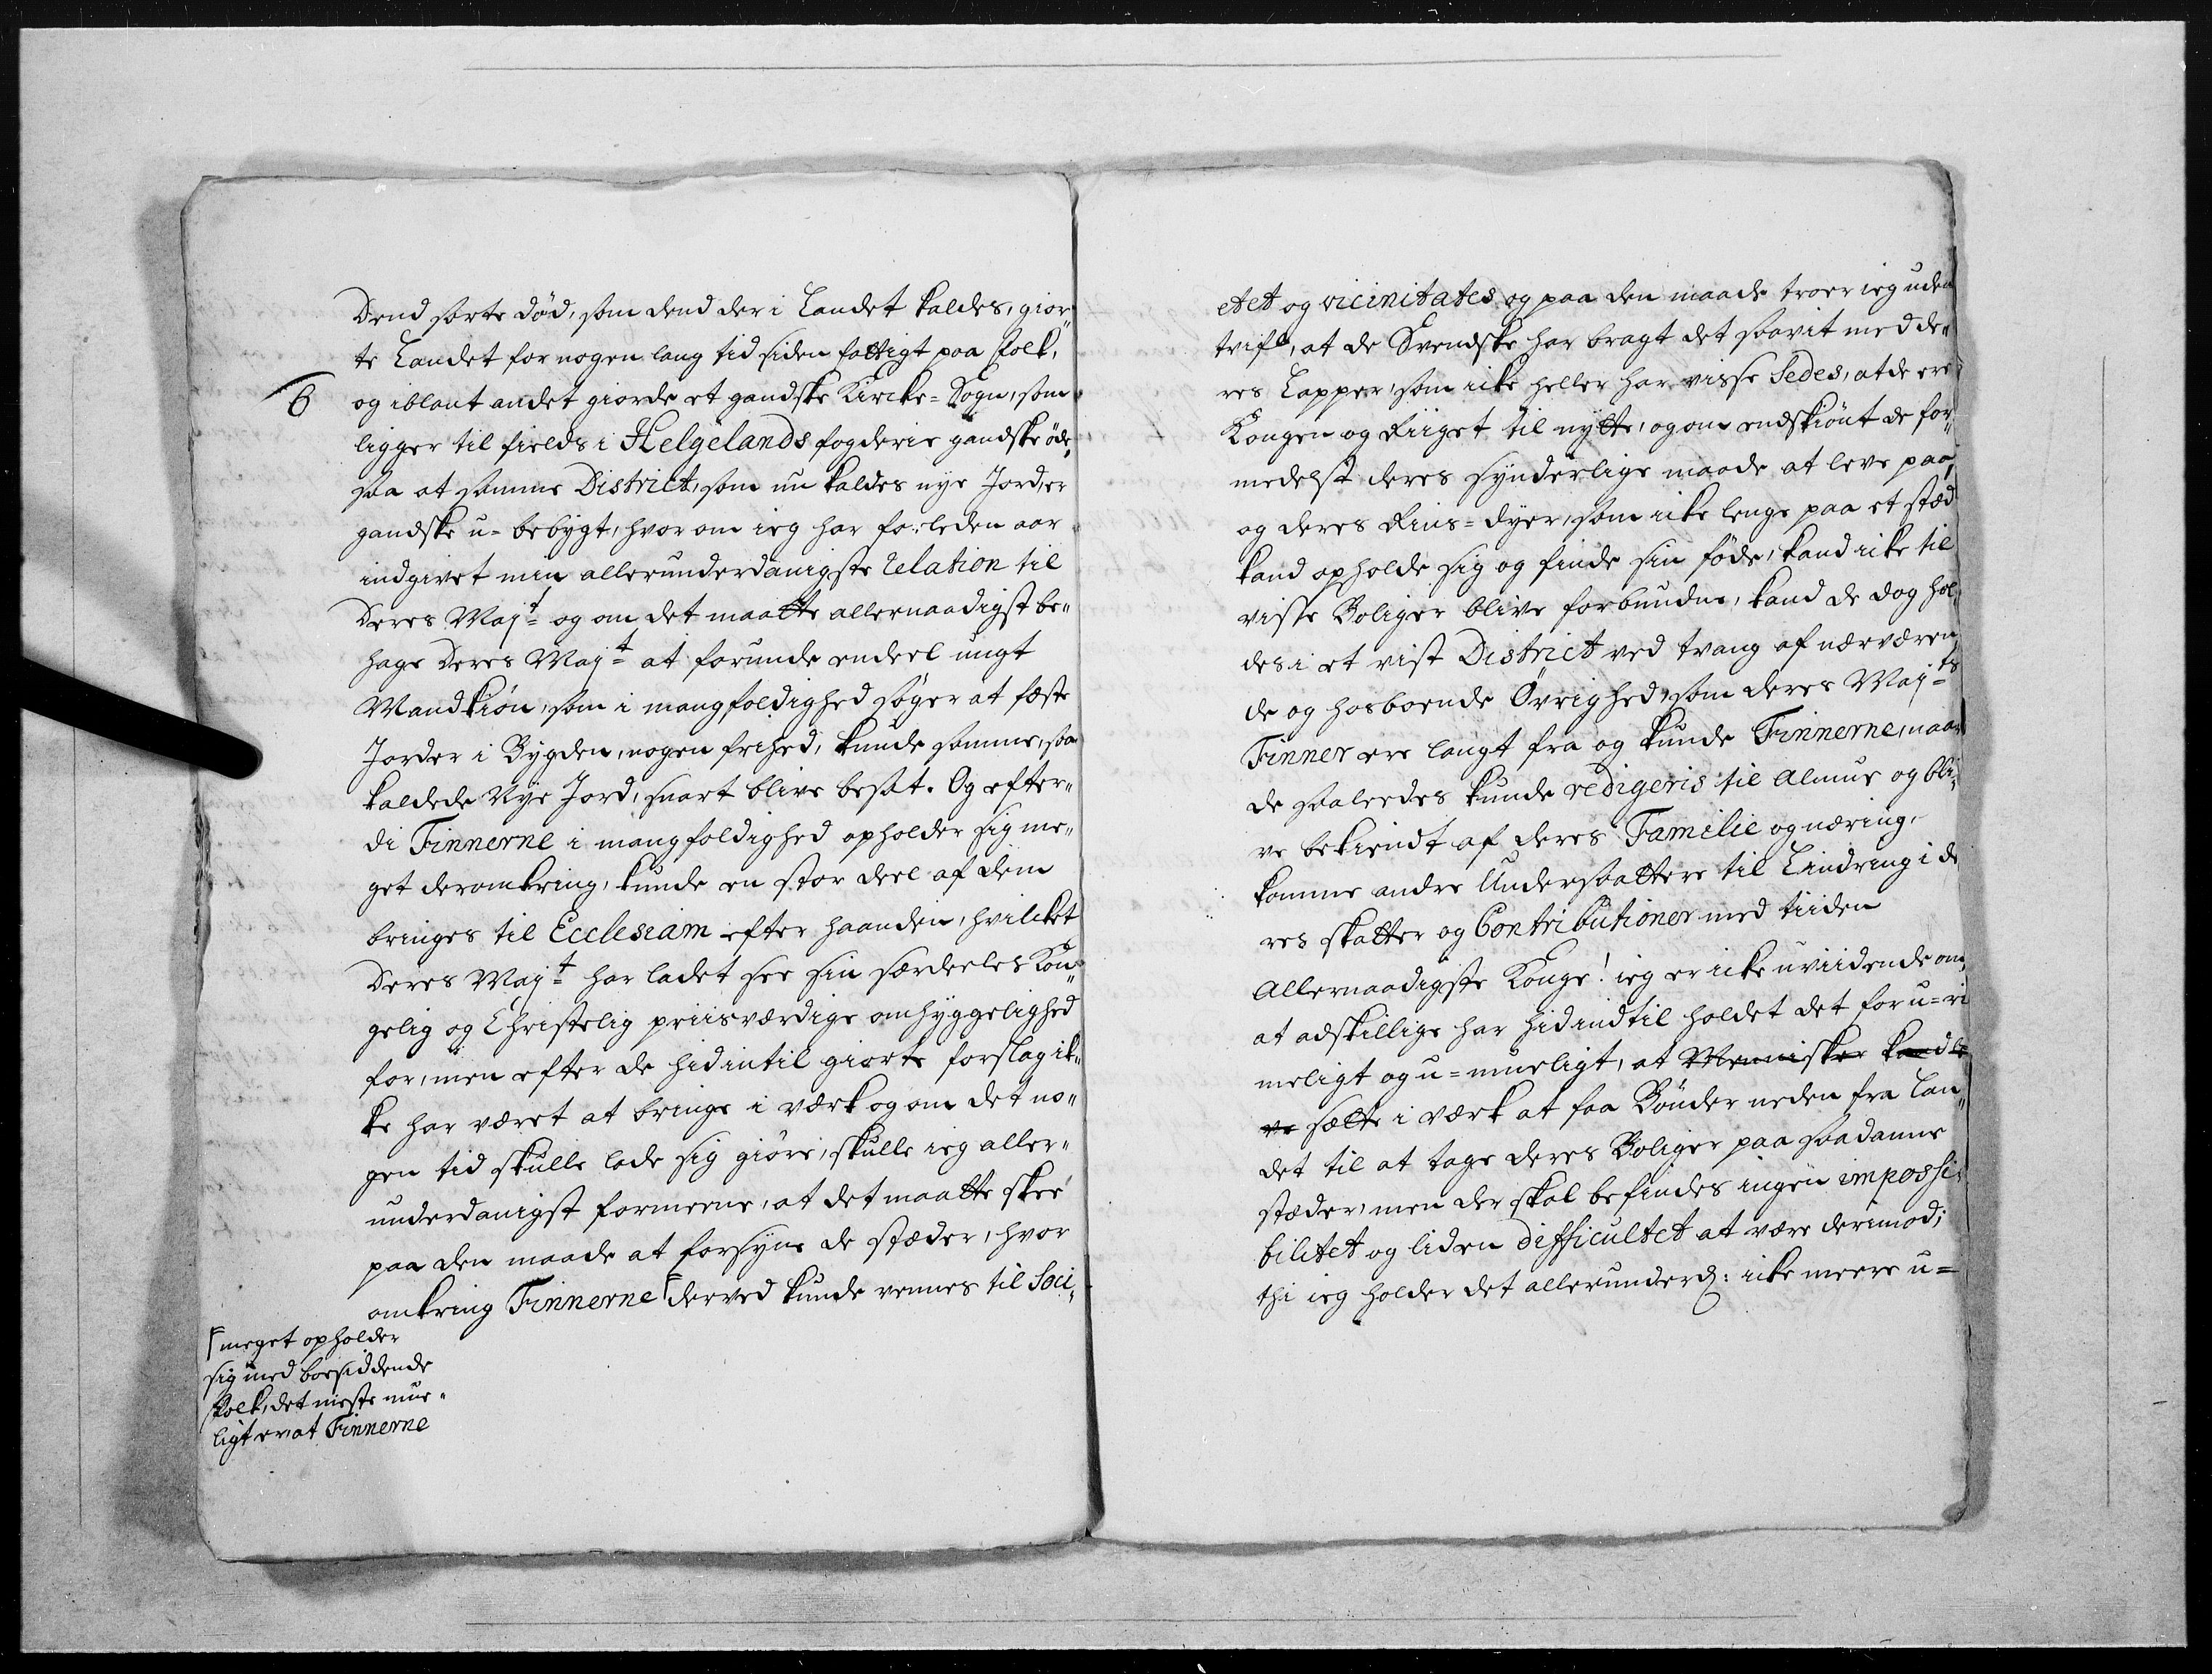 Dend sorte død, som dend der i Landet kaldes, gior„
te Landet for nogen lang tid siden fattigt paa folk,
6
og iblant andet giorde et gandske Kircke=Sogn, som
ligger til fields i Helgelands fogderie gandske øde,
saa at samme District, som nu kaldes nye Jord, er
gandske u=bebygt, hvor om ieg har forleden aar
indgivet min allerunderdanigste relation til
Deres Majt og om det maatte allernaadigst be„
hage Deres Majt at forunde endeel ungt
Mandkiøn, som i mangfoldighed søger at fæste
Jorder i Bygden, nogen frihed, kunde samme, saa
kaldede Nye Jord, snart blive besat. Og efter„
di Finnerne i mangfoldighed opholder sig me„
get deromkring, kunde en stor deel af dem
bringes til Ecclesiam efter haanden, hvilcket
Deres Majt har ladet see sin særdeeles Kon„
gelig og Christelig priisværdige omhyggelighed
for, men efter de hidintil giorte forslag ik„
ke har været at bringe i værk og om det no„
gen tid skulle lade sig giøre, skulle ieg aller„
underdanigst formeene, at det maatte skee
paa den maade at forsyne de stæder, hvor
omkring Finnerne derved kunde vennes til Soci„
meget opholder
sig med boesiddende
Folk, det meste mue„
ligt er at Finnerne
etet og vicinitates og paa den maade troer ieg uden
tvifl, at de Svendske har bragt det saavit med de„
res Lapper, som icke heller har visse Sedes, at de ere
Kongen og Riiget til nytte, og om endskiønt de for„
medelst deres synderlige maade at leve paa,
og deres Rins=dyer, som icke lenge paa et stæd
kand opholde sig og finde sin føde, kand icke til
visse Boliger blive forbundne, kand de dog hol„
des i et vist District ved tvang af nærværen„
de og hosboende Övrighed, som deres Majts
Finner ere langt fra og kunde Finnerne, naar
de saaleedes kunde redigeris til Almue og bli„
ve bekiendt af deres Familie og næring,
komme andre Undersaattere til Lindring i de
res skatter og Contributioner med tiiden
Allernaadigste Konge! ieg er icke uviidende om,
at adskillige har hidindtil holdet det for u=ri
meligt og u=mueligt, at Mennisker kand le
ve sætte i værk at faa Bønder neden fra Lan„
det til at tage deres Boliger paa saadanne
stæder, men der skal befindes ingen impossi„
bilitet og liden difficultet at være derimod;
thi ieg holder det allerunderd: icke meere u=